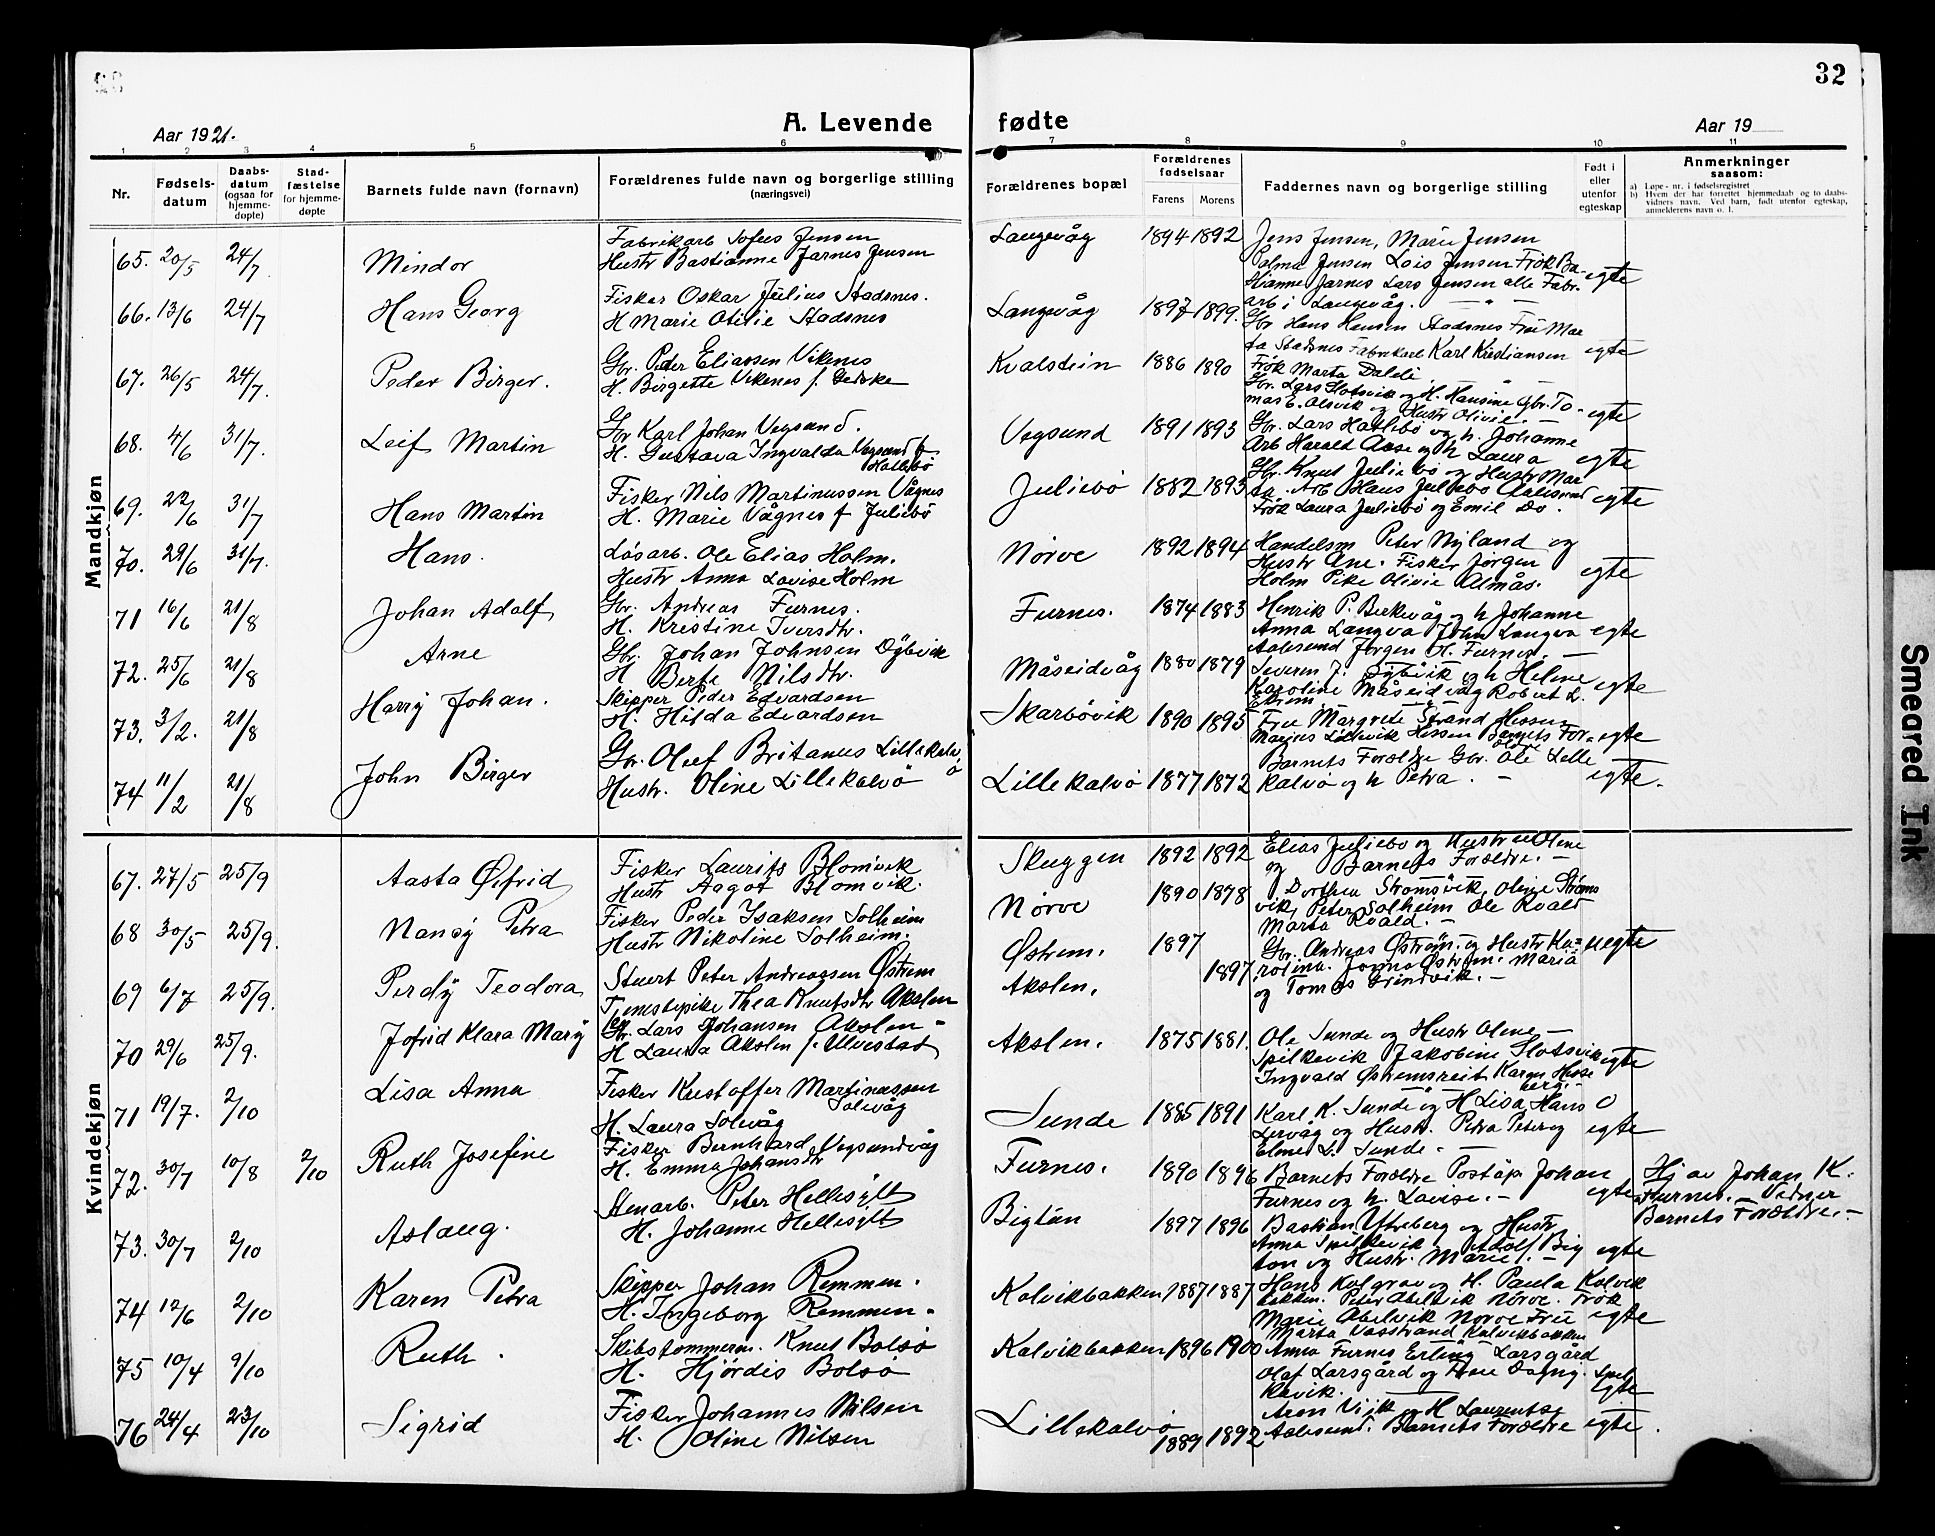 32
Aar 1921.
A. Levende
fødte
Aar 19
1 2 3 4 5 6 7 8 9 10 11
Nr.
Fødsels-
datum
Daabs-
datum
(ogsaa for
hjemme-
døpte)
Stad-
fæstelse
for hjemme-
døpte
Barnets fulde navn (fornavn)
Forældrenes fulde navn og borgerlige stilling
(næringsvei)
Forældrenes bopæl
Forældrenes
fødselsaar
Farens Morens
Faddernes navn og borgerlige stilling
Født i
eller
utenfor
egteskap
Anmerkninger
saasom:
a) Løpe-nr. i fødselsregistret
b) Hvem der har forrettet hjemmedaab og to daabs-
vidners navn. Ved barn, født utenfor egteskap,
anmelderens navn o. l.
Mandkjøn
65. 20/5 24/7 Mindor
Fabrikarb Sofus Jensen
Hustr Bastianne Jarnes Jensen
Langevåg 1894 1892
Jens Jensen, Marie Jensen
Palma Jensen Lois Jensen Frøk Ba-
stianne Jarnes Lars Jensen alle Fabr.
arb i Langevåg.
egte
66. 13/6 24/7 Hans Georg
Fisker Oskar Julius Stadsnes.
H Marie Otilie Stadsnes
Langevåg 1897 1899.
Gbr Hans Hansen Stadsnes Frü Mar
ta Stadsnes Fabrikarb Karl Kristiansen
Frøk Marta Daldi
egte
67. 26/5 24/7. Peder Birger.
Gbr. Peder Eliassen Vikenes
H. Birgette Vikenes f. Gedske
Kvalstein 1886 1890
Gbr. Lars Slotsvik og H. Hansine Gbr. To-
mas E. Olsvik og Hustr Olivie.
egte
68. 4/6 31/7. Leif Martin
Gbr Karl Johan Vegsund.
H. Gustava Ingvalda Vegsund f
Hatlebø
Vegsund 1891 1893
Gbr. Lars Hatlebø og h. Johanne
Arb Harald Aase og h Laura
egte
69. 22/6 31/7 Hans Martin
Fisker Nils Martinussen Vågnes
H. Marie Vågnes f Juliebø
Juliebø 1882 1893
Gbr. Knut Juliebø og Hustr Mar
ta. Arb Hans Juliebø Aalesund
Frøk Laura Juliebø og Emil Do.
egte
70. 29/6 31/7. Hans.
Løsarb. Ole Elias Holm.
Hustr Anna Lovise Holm
Nørve 1892 1894
Handelsm Peter Nyland og
Hustr Ane. Fisker Jørgen
Holm Pike Olivie Almås.
egte
71 16/6 21/8 Johan Adolf
Gbr. Andreas Furnes.
H. Kristine Iversdtr.
Furnes. 1874 1883
Henrik P. Berkevåg og h Johanne
Anna Langva John Langva
Aalesund Jørgen H. Furnes.
egte
72. 25/6 21/8 Arne
Gbr. Johan Johnsen Dÿbvik
H Berte Nilsdtr.
Måseidvåg 1880 1879
Severin J. Dÿbvik og h Helene
Karoline Måseidvåg Robert L.
egte
73. 3/2. 21/8 Harrÿ Johan.
Skipper Peder Edvardsen
H. Hilda Edvardsen
Skarbøvik 1890 1895
Frü Margrete Strand Hessen
Barnets For-
egte
74 11/2 21/8 John Birger
Gbr. Oluf Britanus Lillekalv
ø
Hustr. Oline Lillekalvø
Lillekalvø 1877 1872
Barnets Forældre Gbr. Ole Lille
kalvø og h Petra.
egte.
Kvindekjøn
67. 27/5 25/9 Aasta Øifrid
Fisker Laurits Blomvik
Hustr Aagot Blomvik.
Skuggen 1892 1892
Elias Juliebø og Hustr Oline
og Barnets Forældre.
68 30/5 25/9. Nansÿ Petra
Fisker Peder Isaksen Solheim
Hustr Nikoline Solheim.
Nørve 1890 1878
Dorthea Strømsvik, Oline Strøms
vik, Peter Solheim Ole Roald
Marta Roald.
69 6/7 25/9. Perdÿ Teodora
Stuert Peter Andreassen Østrem
Tjenestepike Thea Knutsdtr Akslen
Østrem. 1897
Akslen, 1897
Gbr. Andreas Østrem. og Hustr Ka-
rolina. Jonna Østrem. Maria
og Tomas Grindvik.
uegte
70 29/6 25/9. Jofrid Klara Marÿ
Gbr. Lars Johansen Akslen
H Laura Akslen f. Ulvestad
Akslen. 1875 1881.
Ole Sunde og Hustr Oline
Spilkevik Jakobine Slotsvik
Ingvald Østremsreit Karen Hesse
berg.
egte
71 19/7. 2/10 Lisa Anna
Fisker Kristoffer Martinussen
Solevåg
H. Laura Solevåg
Sunde 1885 1891
Karl K. Sunde og H Lisa Hans O
Lervåg og Hustr. Petra Peter og
Eline L. Sunde.
egte
72. 30/7 10/8 2/10 Ruth Josefine
Fisker Bernhard Vegsundvåg
H. Emma Johansdtr
Furnes. 1890 1896
Barnets Forældre Poståp. Johan
Furnes og h. Lovise.
egte
Hj av Johan K.
Furnes. Vidner
Barnets Forældre.
73. 30/7 2/10 Aslaug.
Stenarb. Peter Hellesÿlt
H. Johanne Hellesÿlt
Bigtün 1897 1896
Bastian Ytreberg og Hustr
Anna Spilkevik Adolf Big
ton og Hustr. Marie.
egte
74 12/6 2/10 Karen Petra
Skipper Johan Remmen.
H. Ingeborg Remmen.
Kolvikbakken 1887 1887
Hans Kolgrov og H. Paula Kolvik
bakken. Peter Abelvik Nørve. Frøk
Marie Abelvik Nørve Frü
Marta Vasstrand Kolvikbakken
egte
75 10/4 9/10 Ruth.
Skibstømmerm. Knut Bolsø
H. Hjørdis Bolsø
Kolvikbakken 1896 1900
Anna Furnes Erling Larsgård
Olaf Larsgård og Frue Dagny. Spil
kevik.
egte
76 24/4 23/10 Sigrid
Fisker Johannes Nilsen
H. Oline Nilsen
Lillekalvø 1889 1892
Aron Vik og H Laurentse
Aalesund. Barnets Forældre
egte.
Smeared Ink